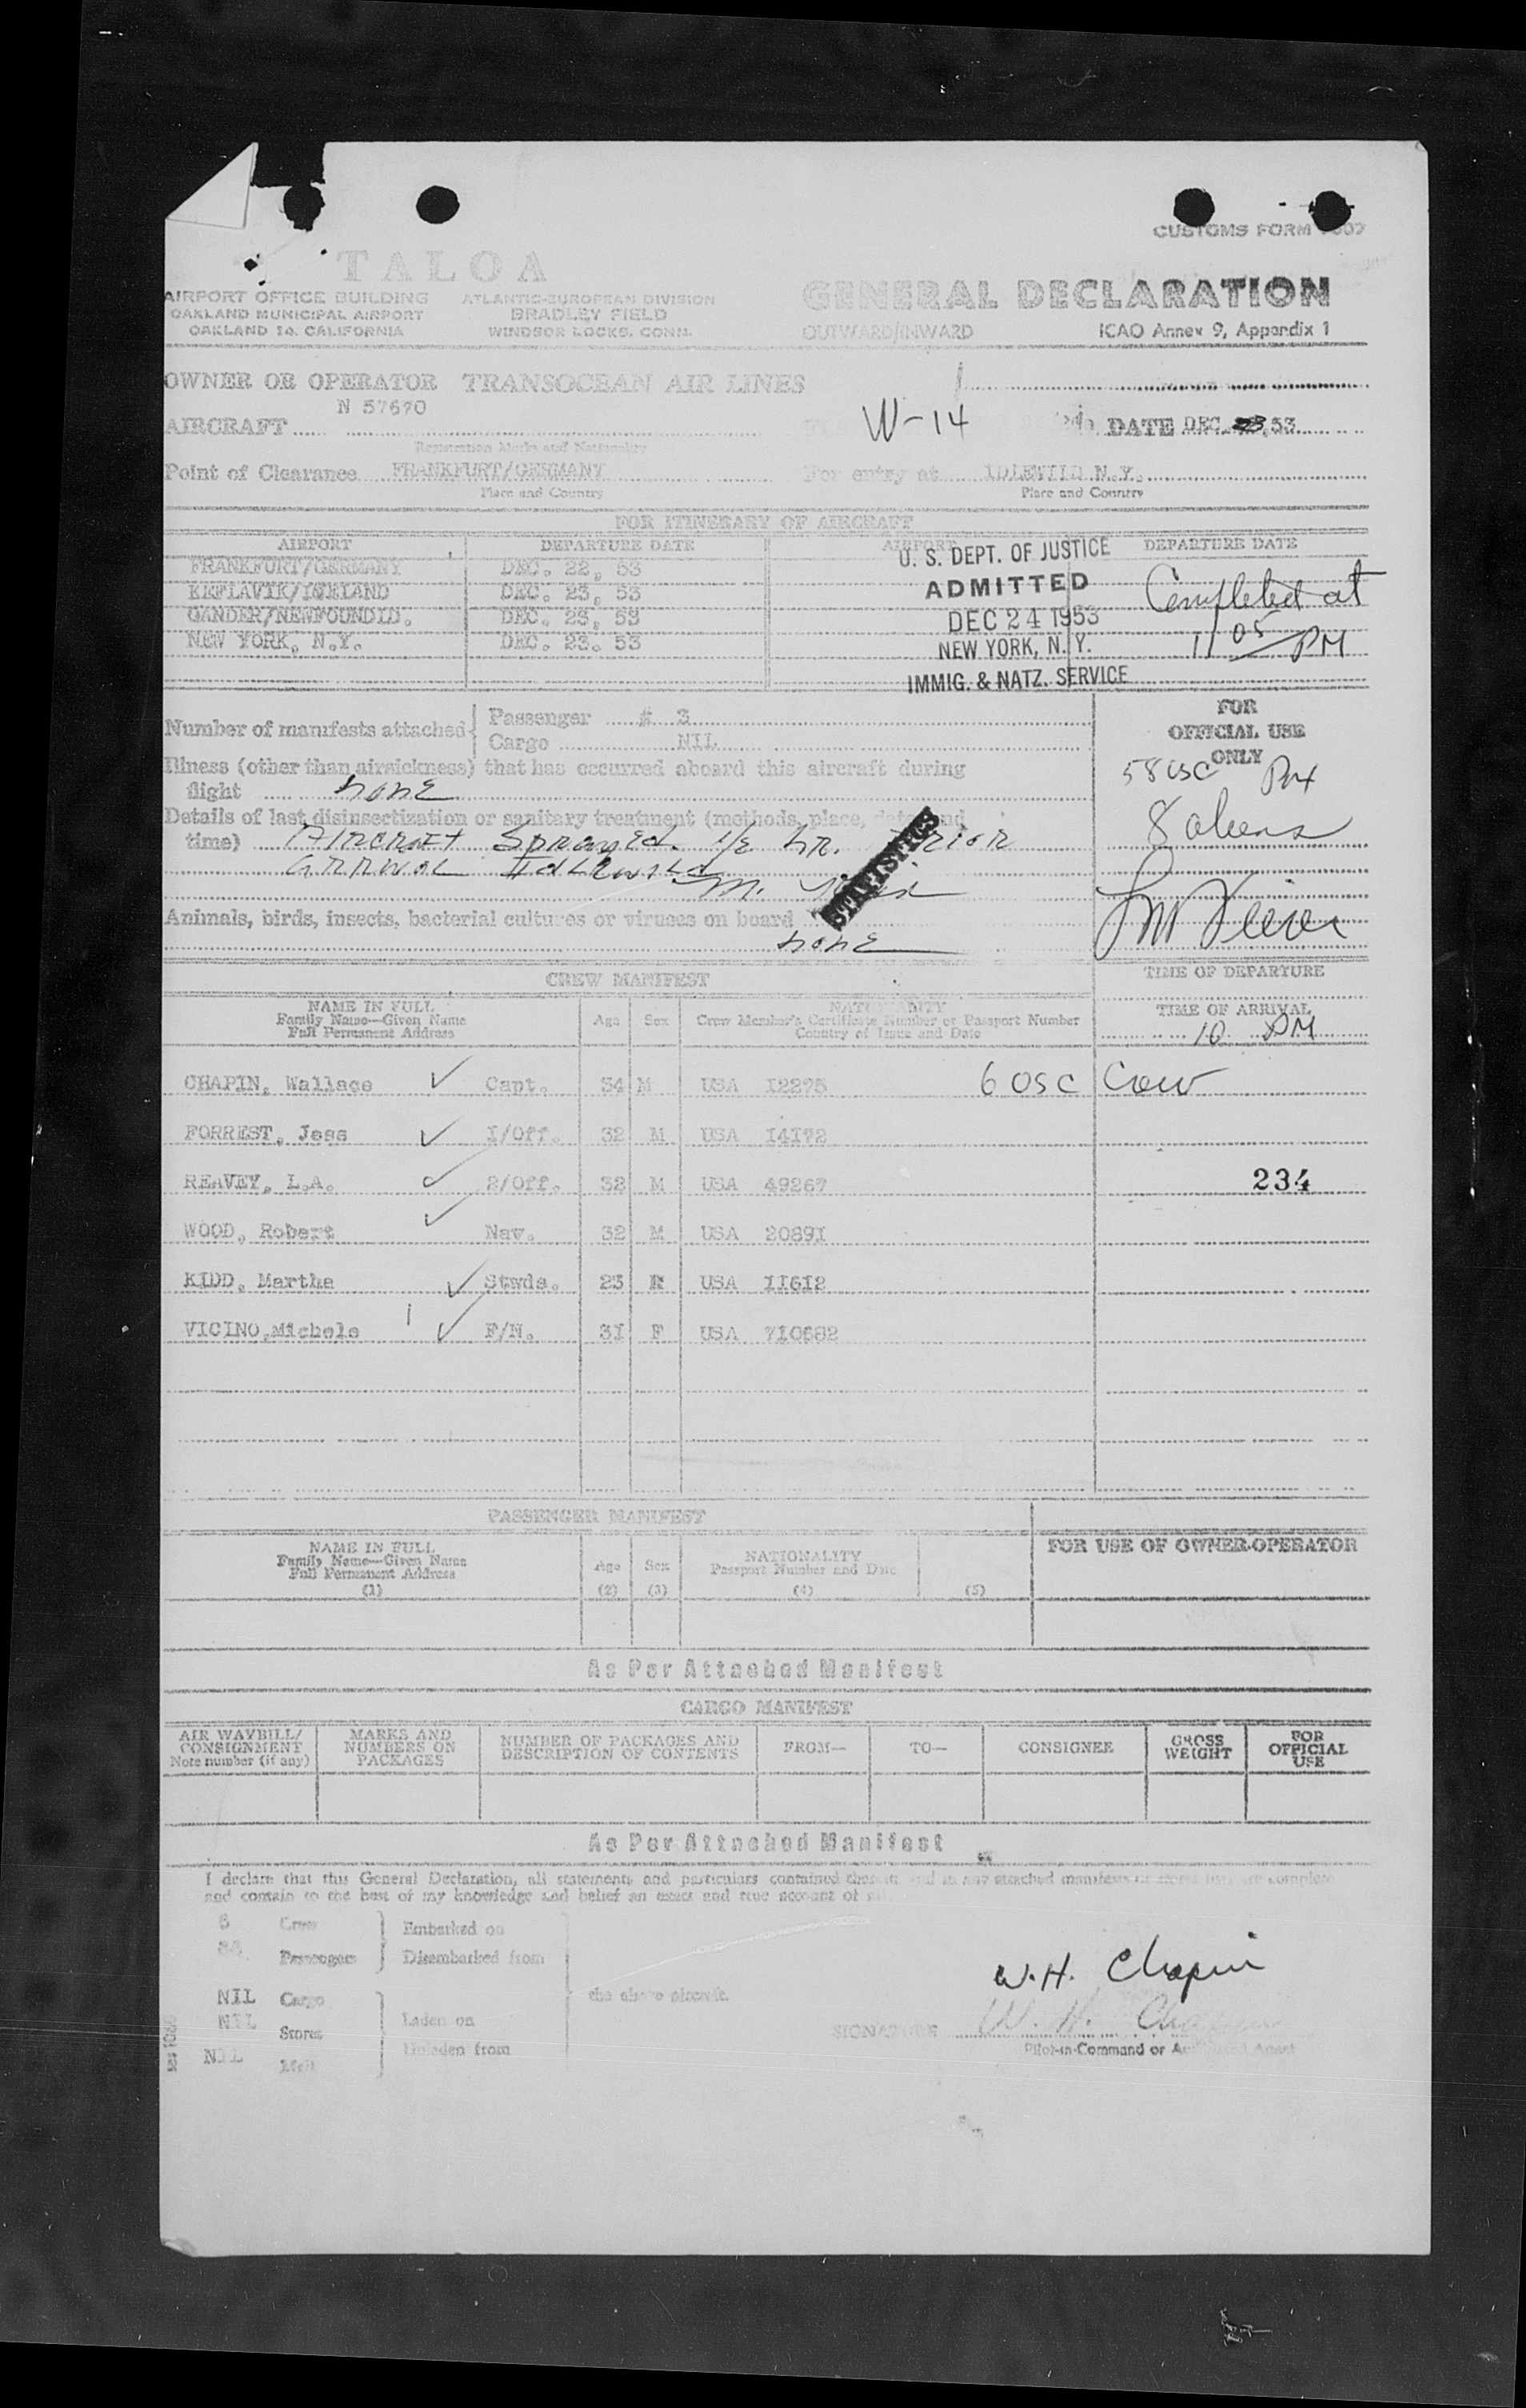 CUSTOMS FORM
TALOA
AIRPORT OFFICE BUILDING
OAKLAND MUNICIPAL AIRPORT
OAKLAND 14, CALIFORNIA
ATLANTIC-EUROPEAN DIVISION
BRADLEY FIELD
WINDSOR LOCKS, CONN.
GENERAL DECLARATION
OUTWARD/INWARD ICAO Annex 9, Appendix 1
OWNER OR OPERATOR TRANSOCEAN AIR LINES
N 57670
AIRCRAFT W-14 DATE DEC. 53
Registration Marks and Nationality
Point of Clearance FRANKFURT/GERMANY For entry at IDLEWILD N.Y.
Place and Country Place and Country
FOR ITINERARY OF AIRCRAFT
AIRPORT DEPARTURE DATE AIRPORT DEPARTURE DATE
FRANKFURT/GERMANY DEC. 22, 53
KEFLAVIK/ICELAND DEC. 23, 53
GANDER/NEWFOUNDLD. DEC. 23, 53
NEW YORK, N.Y. DEC. 23. 53
U. S. DEPT. OF JUSTICE
ADMITTED
DEC 24 1953
NEW YORK, N. Y.
IMMIG. & NATZ. SERVICE
Completed at
11 05 PM
Number of manifests attached
Passenger # 3
Cargo NIL
FOR
OFFICIAL USE
ONLY
58 USC Pax
8 aliens
Illness (other than airsickness) that has occurred aboard this aircraft during
flight none
Details of last disinsectization or sanitary treatment (methods, place, date and
time) Aircraft Sprayed. 1/2 hr. Prior
arrival Idlewild
STATISTICS
Animals, birds, insects, bacterial cultures or viruses on board
none
CREW MANIFEST
TIME OF DEPARTURE
TIME OF ARRIVAL
10 PM
NAME IN FULL
Family Name—Given Name
Full Permanent Address
Age Sex
NATIONALITY
Crew Member's Certificate Number or Passport Number
Country of Issue and Date
CHAPIN, Wallace Capt. 34 M USA 12275 6 USC Crew
FORREST, Jess 1/Off. 32 M USA 14172
REAVEY, L.A. 2/Off. 32 M USA 49267 234
WOOD, Robert Nav. 32 M USA 20891
KIDD, Martha Stwds. 23 USA 11612
VICINO, Michele F/N. 31 F USA 710682
PASSENGER MANIFEST
NAME IN FULL
Family Name—Given Name
Full Permanent Address
(1)
Age
(2)
Sex
(3)
NATIONALITY
Passport Number and Date
(4)
(5)
FOR USE OF OWNER-OPERATOR
As Per Attached Manifest
CARGO MANIFEST
AIR WAYBILL/
CONSIGNMENT
Note number (if any)
MARKS AND
NUMBERS ON
PACKAGES
NUMBER OF PACKAGES AND
DESCRIPTION OF CONTENTS
FROM— TO— CONSIGNEE
GROSS
WEIGHT
FOR
OFFICIAL
USE
As Per Attached Manifest
I declare that this General Declaration, all statements and particulars contained therein and in any attached manifests are complete
and contain to the best of my knowledge and belief an exact and true account of
6 Crew Embarked on
Passengers Disembarked from
NIL Cargo
NIL Stores Laden on
NIL Mail Unladen from
the above aircraft.
W.H. Chapin
SIGNATURE W. H. Chapin
Pilot-in-Command or Authorized Agent